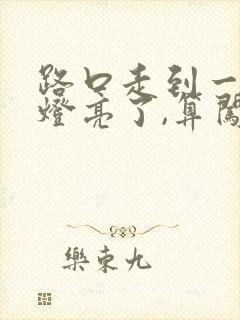 路口走到一
燈亮了,算闖
樂東九